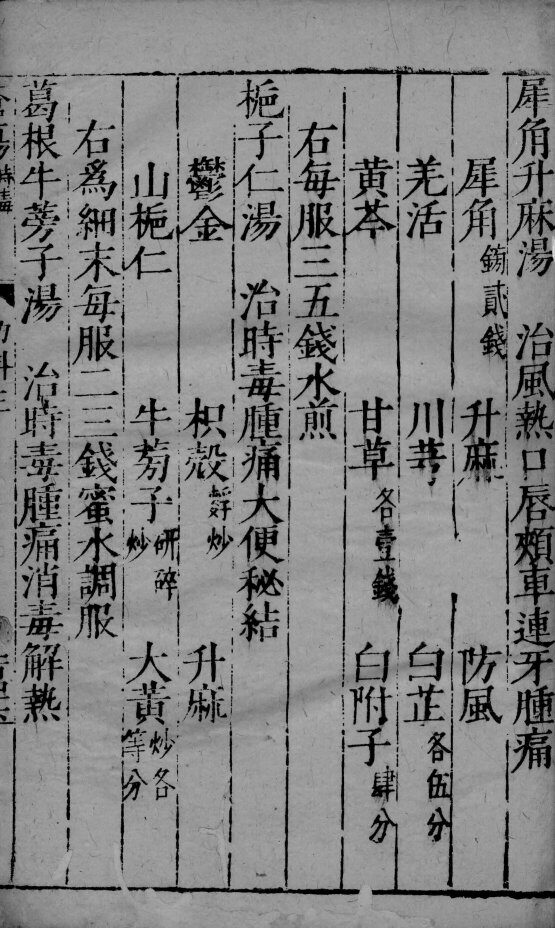 犀角升麻湯　治風熱口唇頰車連牙腫痛
犀角鎊貳錢　升麻　防風
羌活　川芎　白芷各伍分
黄芩　甘草各壹錢　白附子肆分
右每服三五錢水煎
梔子仁湯　治時毒腫痛大便秘結
鬱金　枳殼麩炒　升麻
山梔仁　牛蒡子研碎炒　大黄炒各等分
右爲細末每服二三錢蜜水調服
葛根牛蒡子湯　治時毒腫痛消毒解熱